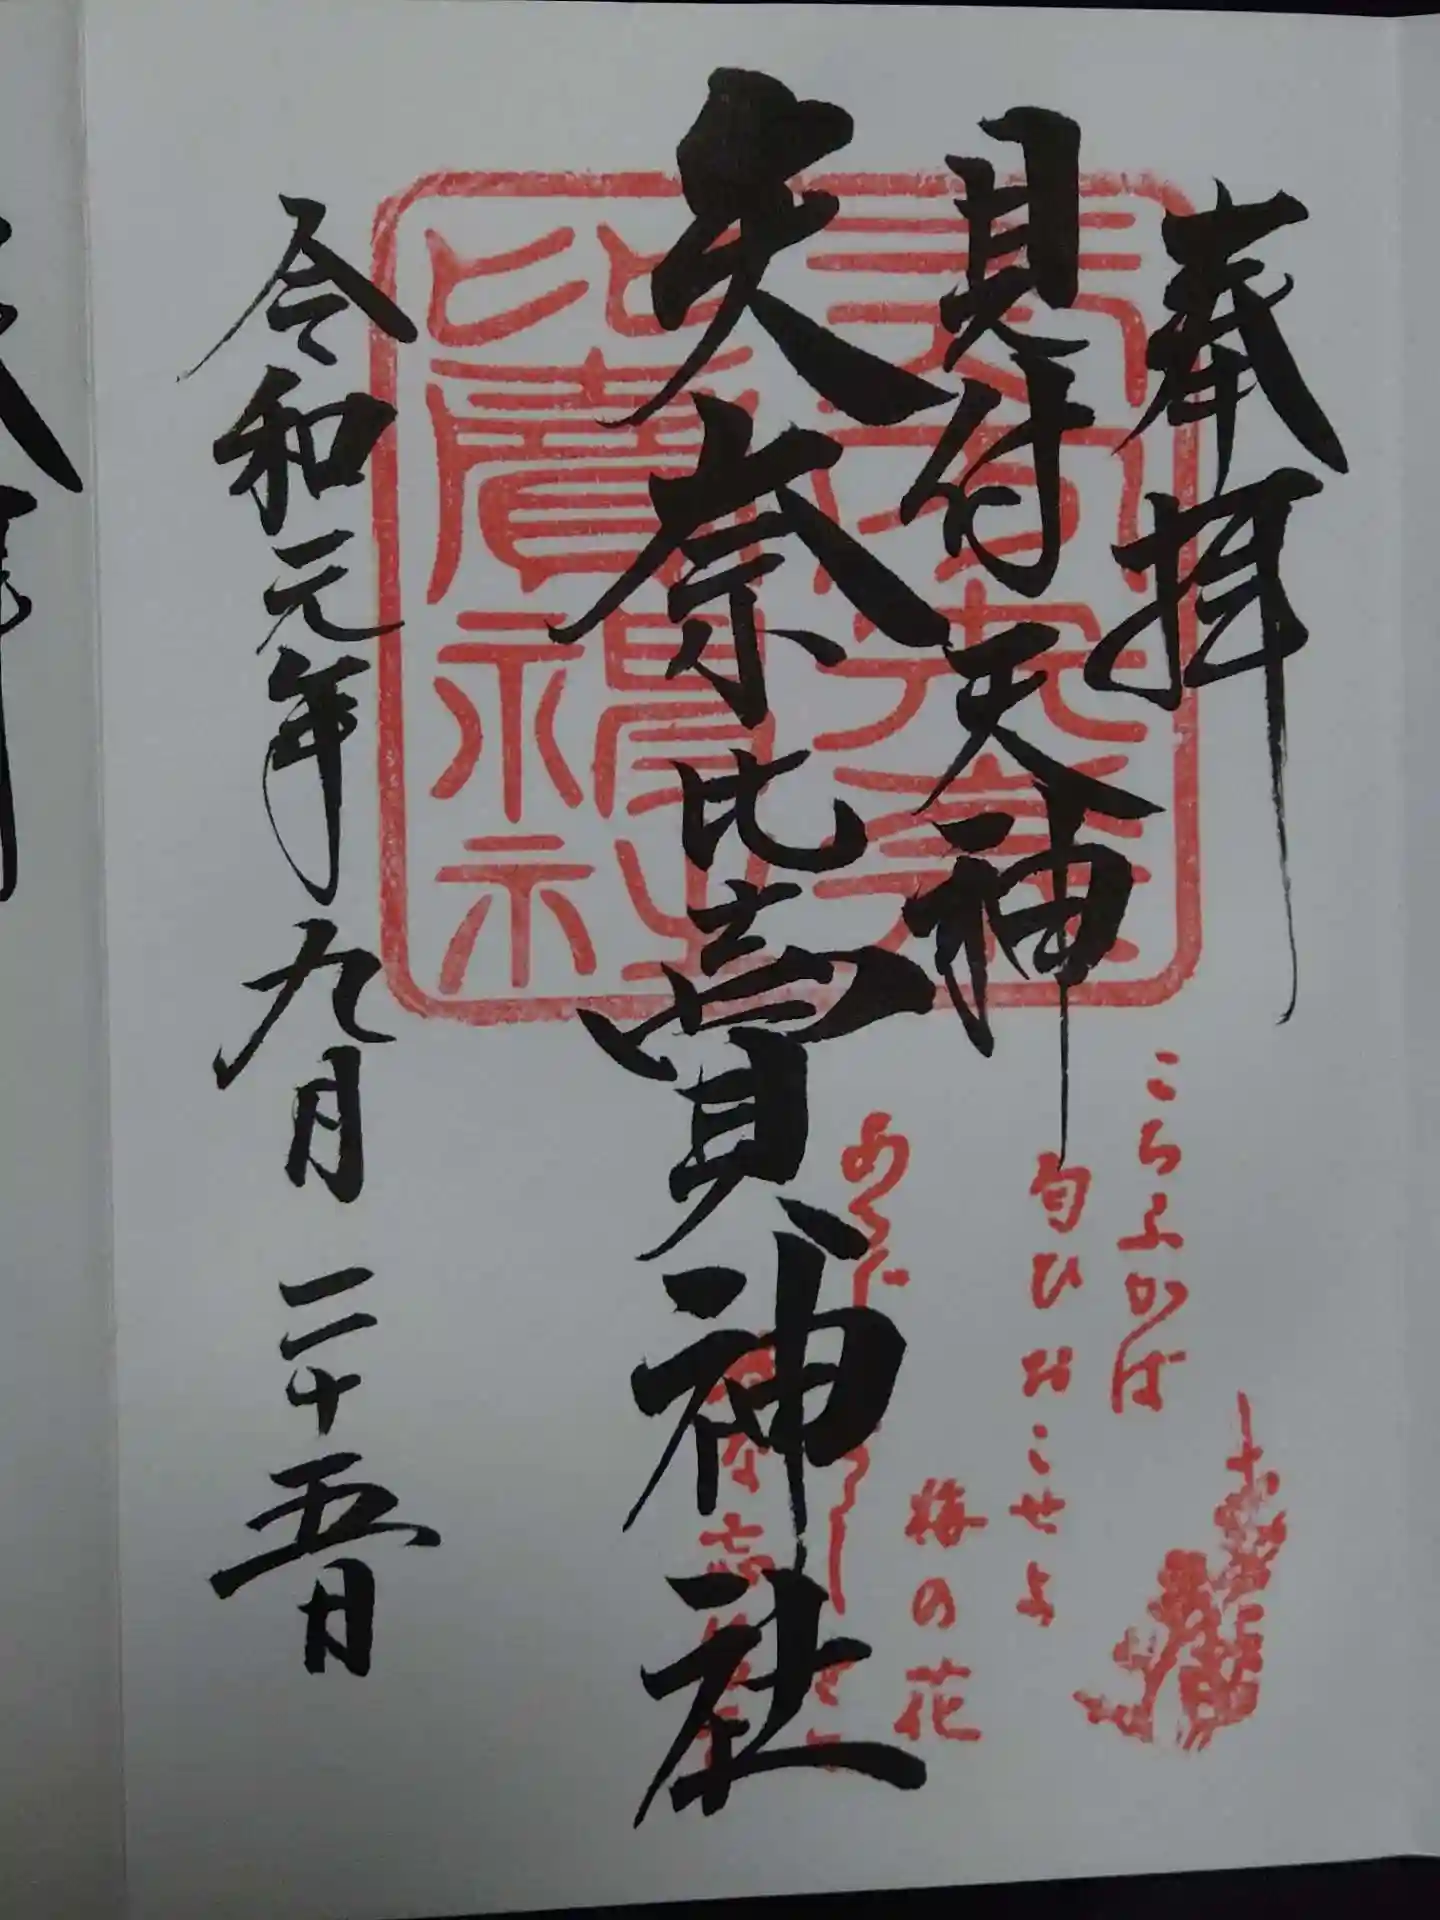 奉拝
見付天神
矢奈比賣神社
令和元年九月二十五日
こちふかば
匂ひおこせよ
梅の花
あるじ
な忘